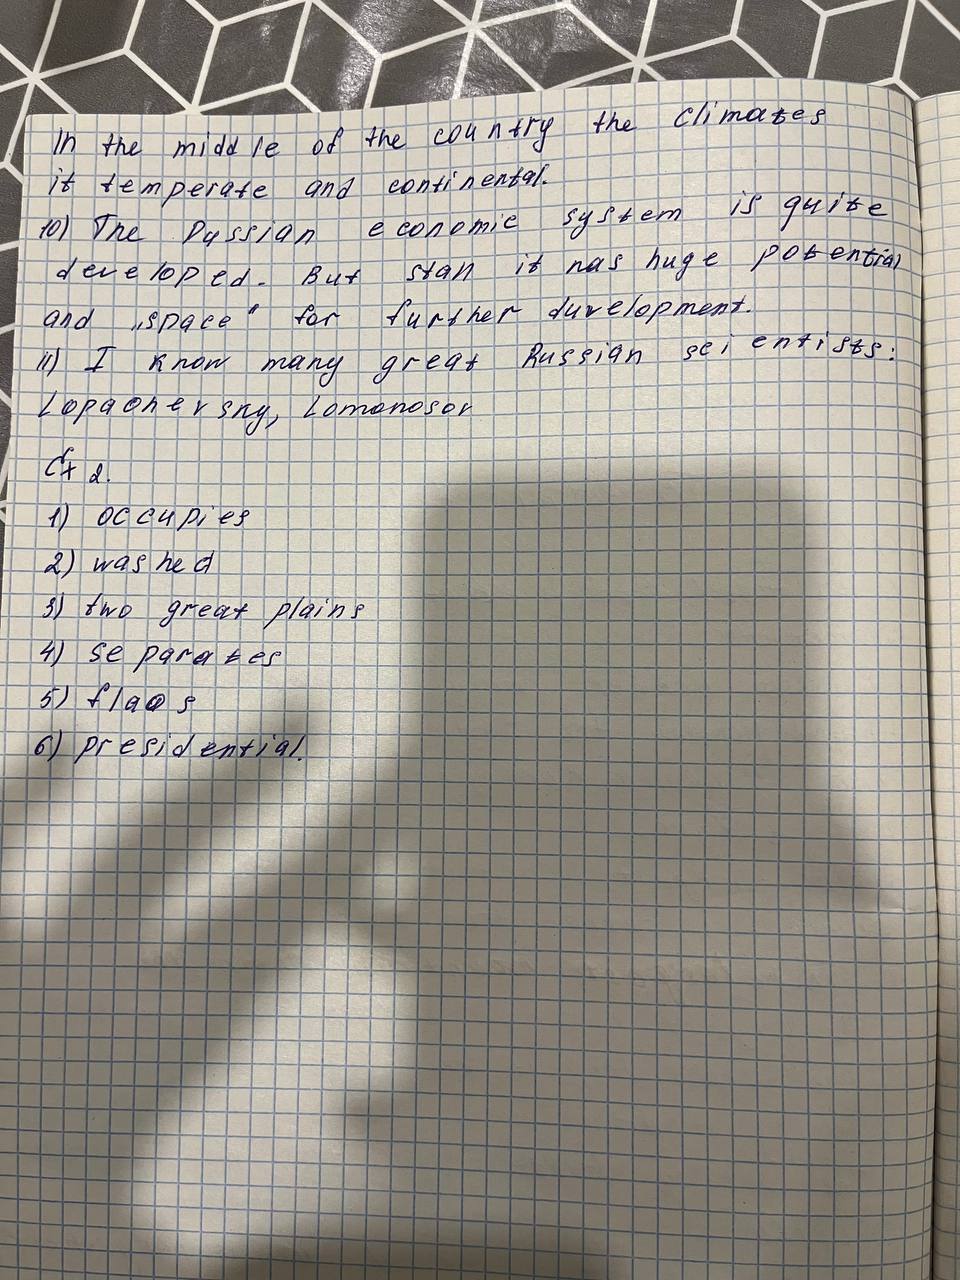 In the middle of the country the climates
it temperate and continental.
10) The Dussian economic system is quite
developed. But stan it has huge potential
and „space" for further durelopment.
11) I know many great Russian scientists:
Lopachersky, Lomonosov
Ex 2.
1) occupies
2) washed
3) two great plains
4) separates
5) flaos
6) presidential.